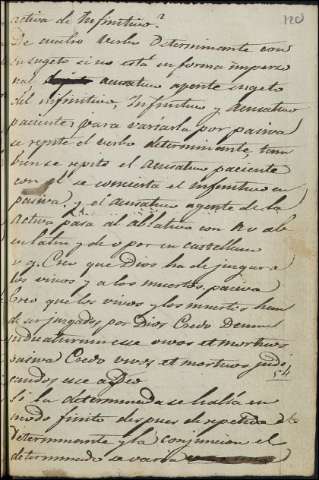 120
activa de Infinitivo?
De nuestro verbo Determinante con
su sugeto si no está en forma imperso
nal acusativo agente sugeto
del infinitivo, Infinitivo y Acusativo
paciente; para variarla por pasiva
se repite el verbo determinante, tam
bien se repite el Acusativo paciente
con él se concierta el infinitivo en
pasiva, y el acusativo agente de la
Activa pasa al ablativo con A o ab
en latin y de o por en castellano
v. g. Creo que Dios ha de juzgar a
los vivos y a los muertos, pasiva
Creo que los vivos y los muertos han
de ser juzgados por Dios Credo Deum
judicaturum esse vivos et mortuos
pasiva Credo vivos et mortuos judi
candos esse a Deo
Si la determinada se halla en
modo finito despues de repetida el
determinante y la conjuncion el
determinado se varia